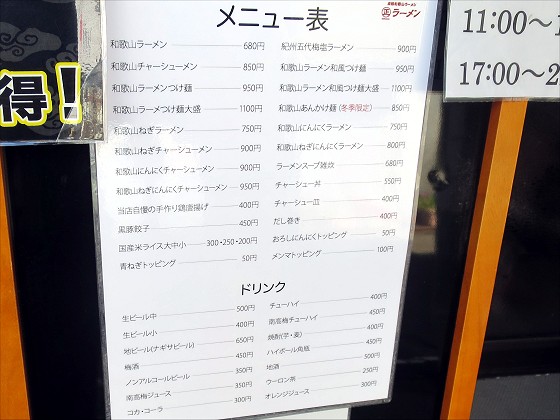 メニュー表
正ラーメン
得!
11:00〜1
17:00〜2
和歌山ラーメン 680円
和歌山チャーシューメン 850円
和歌山ラーメンつけ麺 950円
和歌山ラーメンつけ麺大盛 1100円
和歌山ねぎラーメン 750円
和歌山ねぎチャーシューメン 900円
和歌山にんにくチャーシューメン 900円
和歌山ねぎにんにくチャーシューメン 950円
当店自慢の手作り鶏唐揚げ 400円
黒豚餃子 450円
国産米ライス大中小 300・250・200円
青ねぎトッピング 50円
紀州五代梅塩ラーメン 900円
和歌山ラーメン和風つけ麺 950円
和歌山ラーメン和風つけ麺大盛 1100円
和歌山あんかけ麺(冬季限定) 850円
和歌山にんにくラーメン 750円
和歌山ねぎにんにくラーメン 800円
ラーメンスープ雑炊 680円
チャーシュー丼 550円
チャーシュー皿 400円
だし巻き 400円
おろしにんにくトッピング 50円
メンマトッピング 100円
ドリンク
生ビール中 500円
生ビール小 400円
地ビール(ナギサビール) 650円
梅酒 450円
ノンアルコールビール 350円
南高梅ジュース 350円
コカ・コーラ 300円
チューハイ 400円
南高梅チューハイ 450円
焼酎(芋・麦) 400円
ハイボール角瓶 450円
地酒 500円
ウーロン茶 250円
オレンジジュース 300円